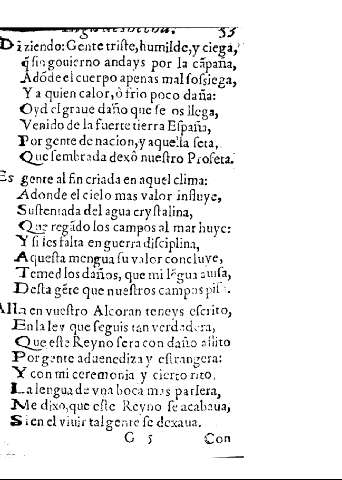 55
Diziendo: Gente triste, humilde, y ciega,
q̃ sin gouierno andays por la cãpaña,
Adõde el cuerpo apenas mal sossiega,
Y a quien calor, ò frio poco daña:
Oyd el graue daño que se os llega,
Venido de la fuerte tierra España,
Por gente de nacion, y aquella seta,
Que sembrada dexò nuestro Profeta.
Es gente al fin criada en aquel clima:
Adonde el cielo mas valor influye,
Sustentada del agua crystalina,
Que regãdo los campos al mar huye:
Y si les falta en guerra disciplina,
Aquesta mengua su valor concluye,
Temed los daños, que mi lẽgua auisa,
Desta gẽte que nuestros campos
Alla en vuestro Alcoran teneys escrito,
En la ley que seguis tan verdadera,
Que este Reyno sera con daño aflito
Por gente aduenediza y estrangera:
Y con mi ceremonia y cierto rito,
La lengua de vna boca mas parlera,
Me dixo, que este Reyno se acabaua,
Si en el viuir tal gente se dexaua.
G 5 Con